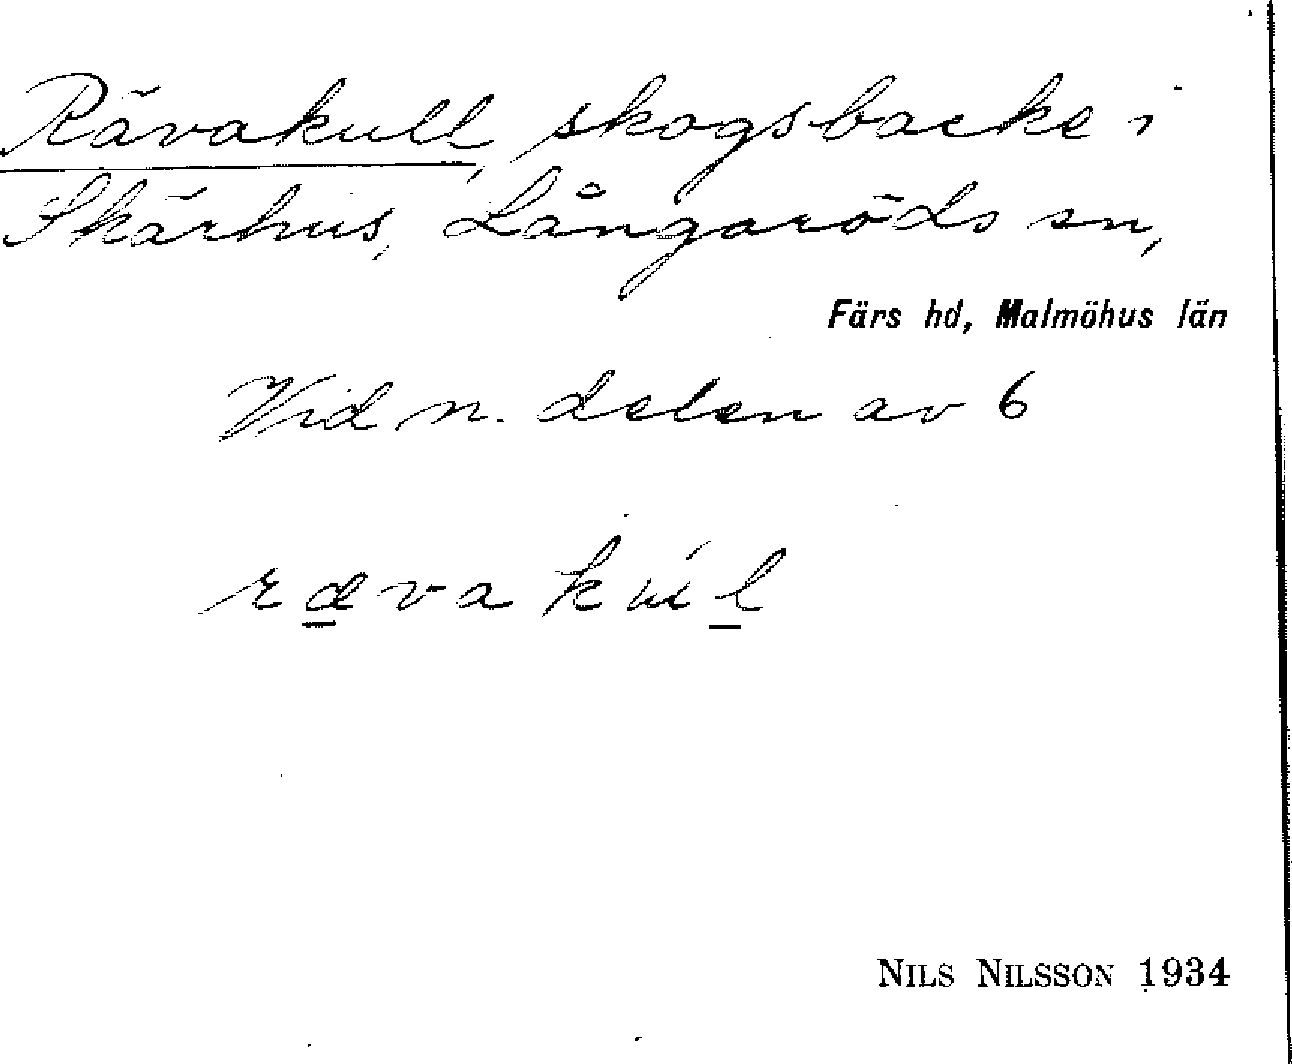 Rävakull, skogsbacke i
Skärhus, Långaröds sn,
Färs hd, Malmöhus län
Vid n. delen av 6
ræva
NILS NILSSON 1934